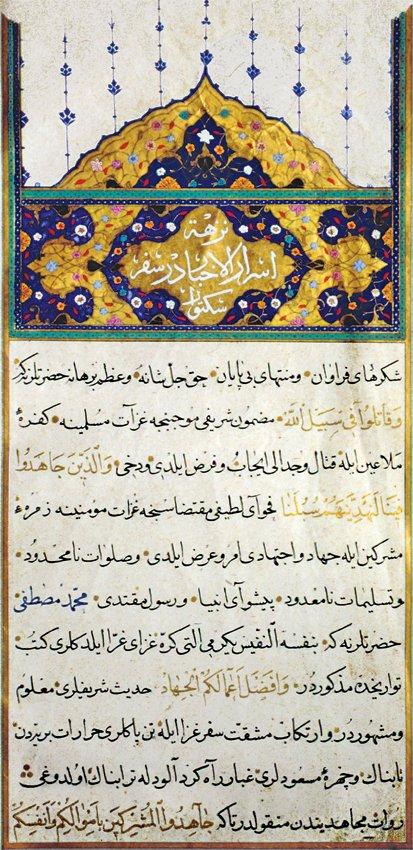 نزهة
اسرار الاخبار در سفر
سكتوار
شكرهای فراوان ومنتهای بی پایان حق جل شانه وعظم برهانه حضرتلرینه كه
وَقَاتِلُوا فِی سَبِیلِ اللّٰهِ مضمون شریفی موجبنجه غزات مسلمینه كفرهٔ
ملاعین ایله قتال وجدالی ایجاب وفرض ایلدی ودخی وَالَّذِینَ جَاهَدُوا
فِینَا لَنَهْدِیَنَّهُمْ سُبُلَنَا فحوای لطیفی مقتضاسنجه غزات مؤمنینه زمرهٔ
مشركین ایله جهاد واجتهادی امر وعرض ایلدی وصلوات نامحدود
وتسلیمات نامعدود پیشوای انبیا ورسول مقتدی محمد مصطفی
حضرتلرینه كه بنفسه النفیس یكرمی التی كرّه غزای غرّا ایلدكلری كتب
تواریخده مذكوردر وَاَفْضَلُ اَعْمَالِكُمُ الْجِهَادُ حدیث شریفلری معلوم
ومشهوردر وارتكاب مشقت سفر غزا ایله تن پاكلری حرارات
تابناك وچهرهٔ مسعودلری غبار راه كرد آلود له ترابناك اولدوغی
روات مجاهدیندن منقولدر تاكه جَاهِدُوا الْمُشْرِكِینَ بِاَمْوَالِكُمْ وَاَنْفُسِكُمْ